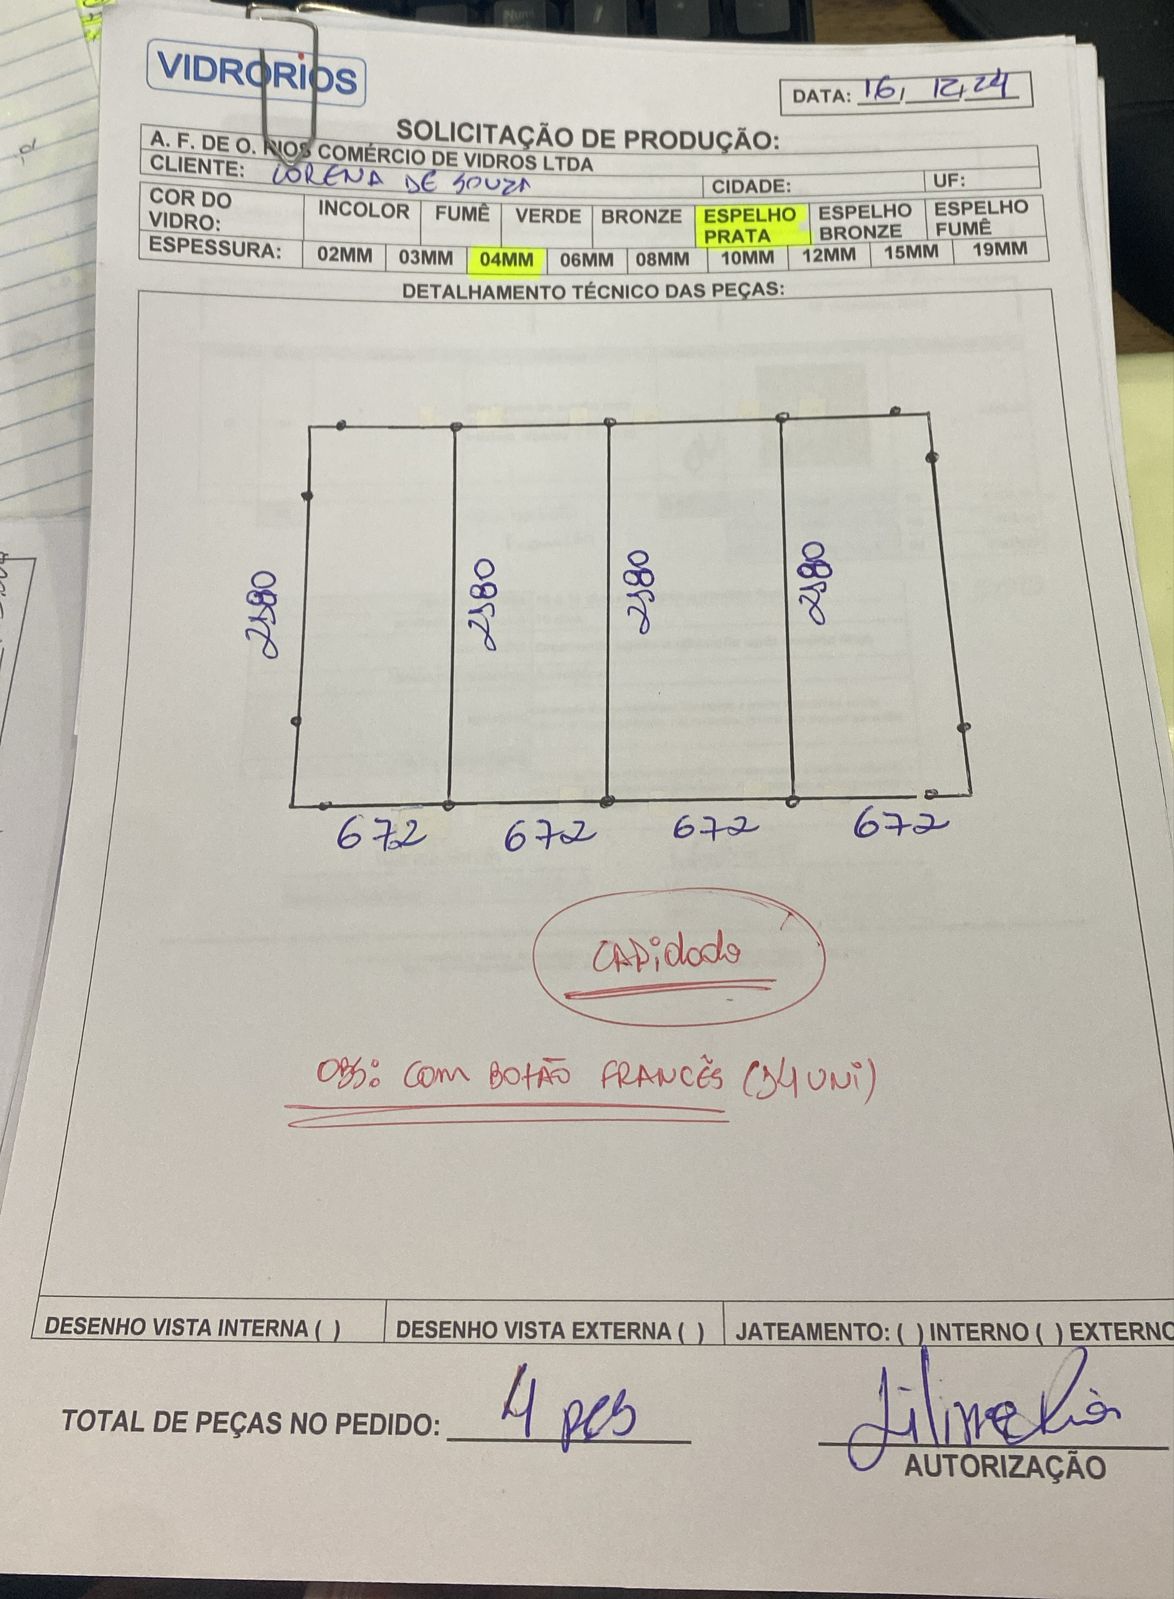 VIDRORIOS
DATA: 16, 12, 24
SOLICITAÇÃO DE PRODUÇÃO:
A. F. DE O. RIOS COMÉRCIO DE VIDROS LTDA
CLIENTE: LORENA DE SOUZA CIDADE: UF:
COR DO VIDRO: INCOLOR FUMÊ VERDE BRONZE ESPELHO PRATA ESPELHO BRONZE ESPELHO FUMÊ
ESPESSURA: 02MM 03MM 04MM 06MM 08MM 10MM 12MM 15MM 19MM
DETALHAMENTO TÉCNICO DAS PEÇAS:
672 672 672 672
OBS: COM BOTÃO FRANCÊS
DESENHO VISTA INTERNA ( ) DESENHO VISTA EXTERNA ( ) JATEAMENTO: ( ) INTERNO ( ) EXTERNO
TOTAL DE PEÇAS NO PEDIDO: 4 pçs
AUTORIZAÇÃO